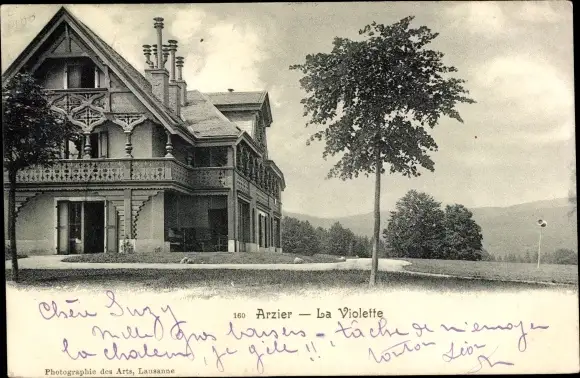 160 Arzier — La Violette
Chère Suzy
Mille gros baisers — tâche de m'envoyer
la chaleur, je gèle !!
Photographie des Arts, Lausanne